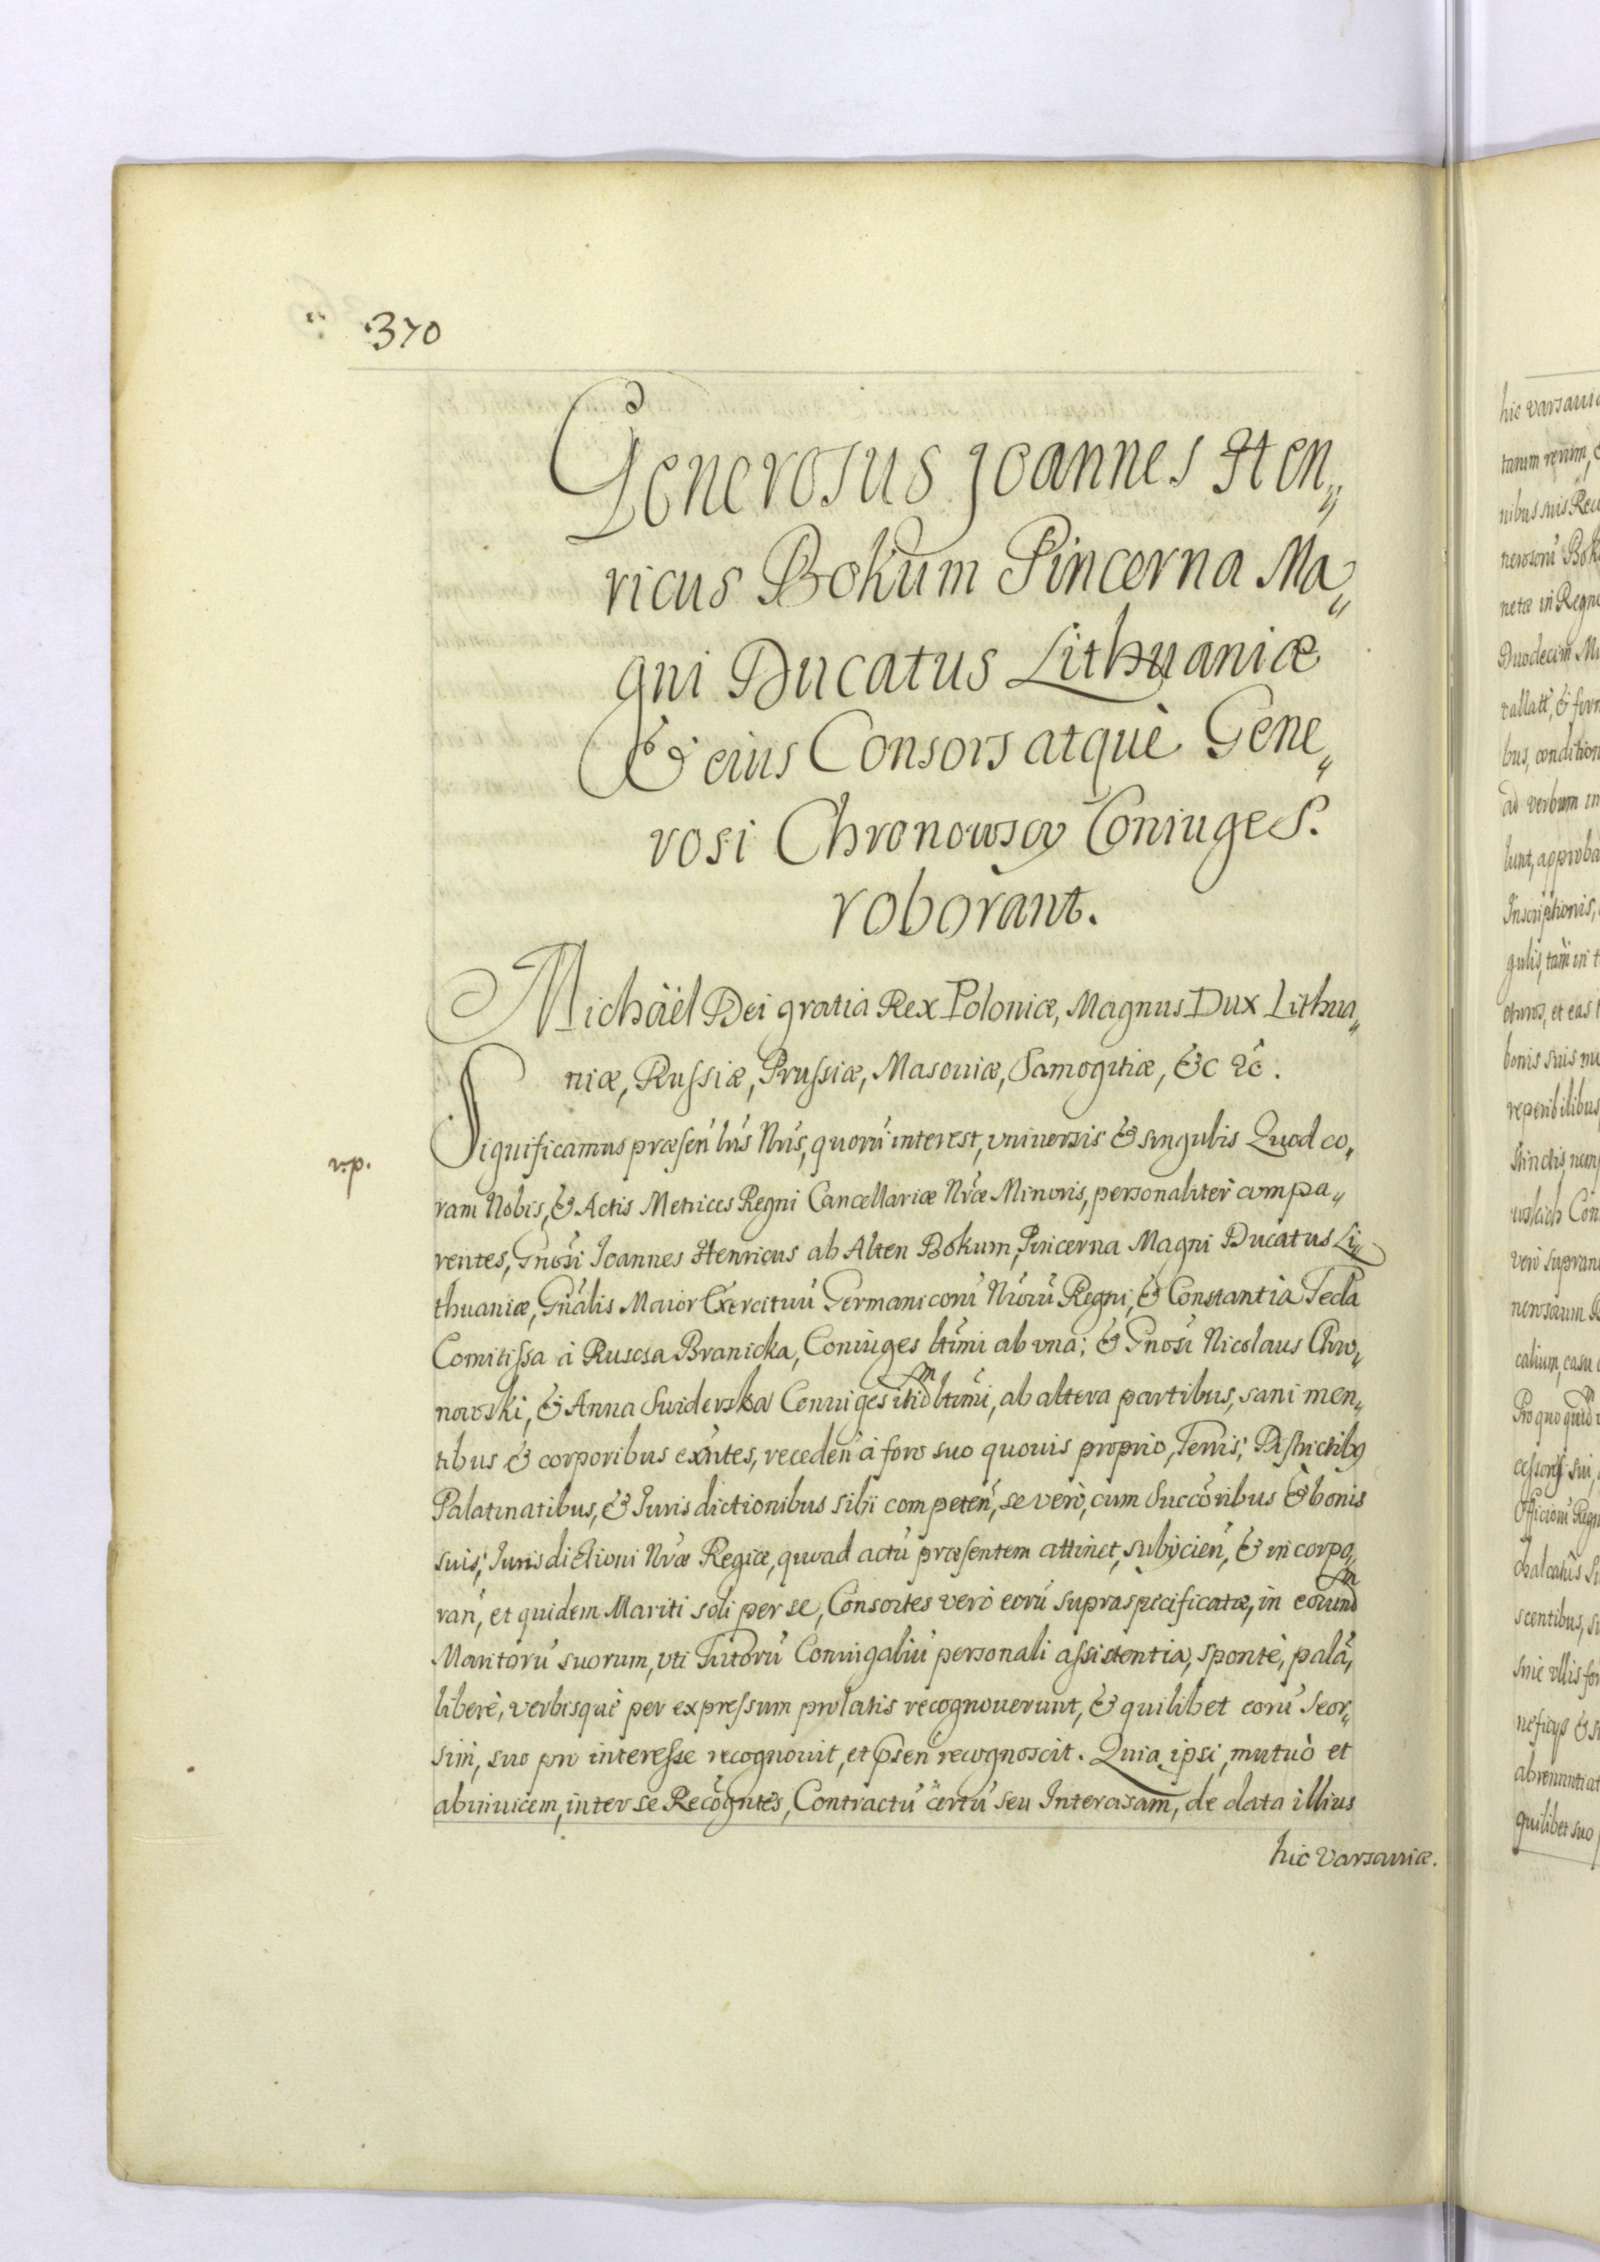 370
Generosus Joannes Hen„
ricus Bokum Pincerna Ma„
gni Ducatus Lithuaniæ
& eius Consors atquè Gene„
rosi Chronowscy Coniuges.
roborant.
Michäel Dei gratia Rex Poloniæ, Magnus Dux Lithua„
niæ, Russiæ, Prussiæ, Masoviæ, Samogitiæ, &c &c.
Significamus præsen̄ l̄ris N̄ris, quorū interest, vniversis & singulis Quod co„
v.p.
ram Nobis, & Actis Metrices Regni Cancellariæ N̄ræ Minoris, personaliter compa„
rentes, Gn̄osi Joannes Henricus ab Alten Bokum, Pincerna Magni Ducatus Li„
thuaniæ, Gn̄alis Maior Exercituū Germanicorū N̄rorū Regni, & Constantia Tecla
Comitissa à Ruscsa Branicka, Coniuges lt̄imi ab vna; & Gn̄osi Nicolaus Chro„
nowski, & Anna Swiderska Coniuges itid̄m lt̄imi, ab altera partibus, sani men„
tibus & corporibus exn̄tes, receden̄ à foro suo quovis proprio, Terris, Districtibus
Palatinatibus, & Jurisdictionibus sibi competen̄, se verò, cum Succ̄oribus & bonis
suis, Jurisdictioni N̄ræ Regiæ, quoad actū præsentem attinet, subijcien̄, & incorpo„
ran̄, et quidem Mariti soli per se, Consortes verò eorū supraspecificatæ, in eorund̄m
Maritorū suorum, vti Tutorū Coniugaliū personali assistentia, spontè, palā,
liberè, verbisquè per expressum prolatis recognoverunt, & quilibet eorū seor„
sim, suo pro interesse recognovit, et p̄sen̄ recognoscit. Quia ipsi, mutuò et
abinuicem, inter se Recōgn̄tes, Contractū certū seu Intercisam, de data illius
hic Varsaviæ.
hic Varsavi
nibus suis
netæ in Regn
Duodecim
bus, condition
ad verbum in
lunt, approba
Inscriptionis,
bonis suis
reperibilibus
calium, casu
scentibus,
sine vllis
quilibet suo